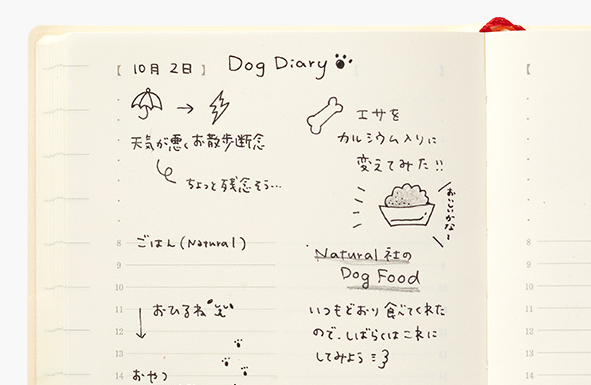 [ 10月 2日 ] Dog Diary
→
天気が悪くお散歩断念
ちょっと残念そう…
8 ごはん(Natural)
9
10
11 おひるね
12
13
14 おやつ
エサを
カルシウム入りに
変えてみた!!
おいしいかな〜
Natural社の
Dog Food
いつもどおり食べてくれた
ので、しばらくはこれに
してみよう